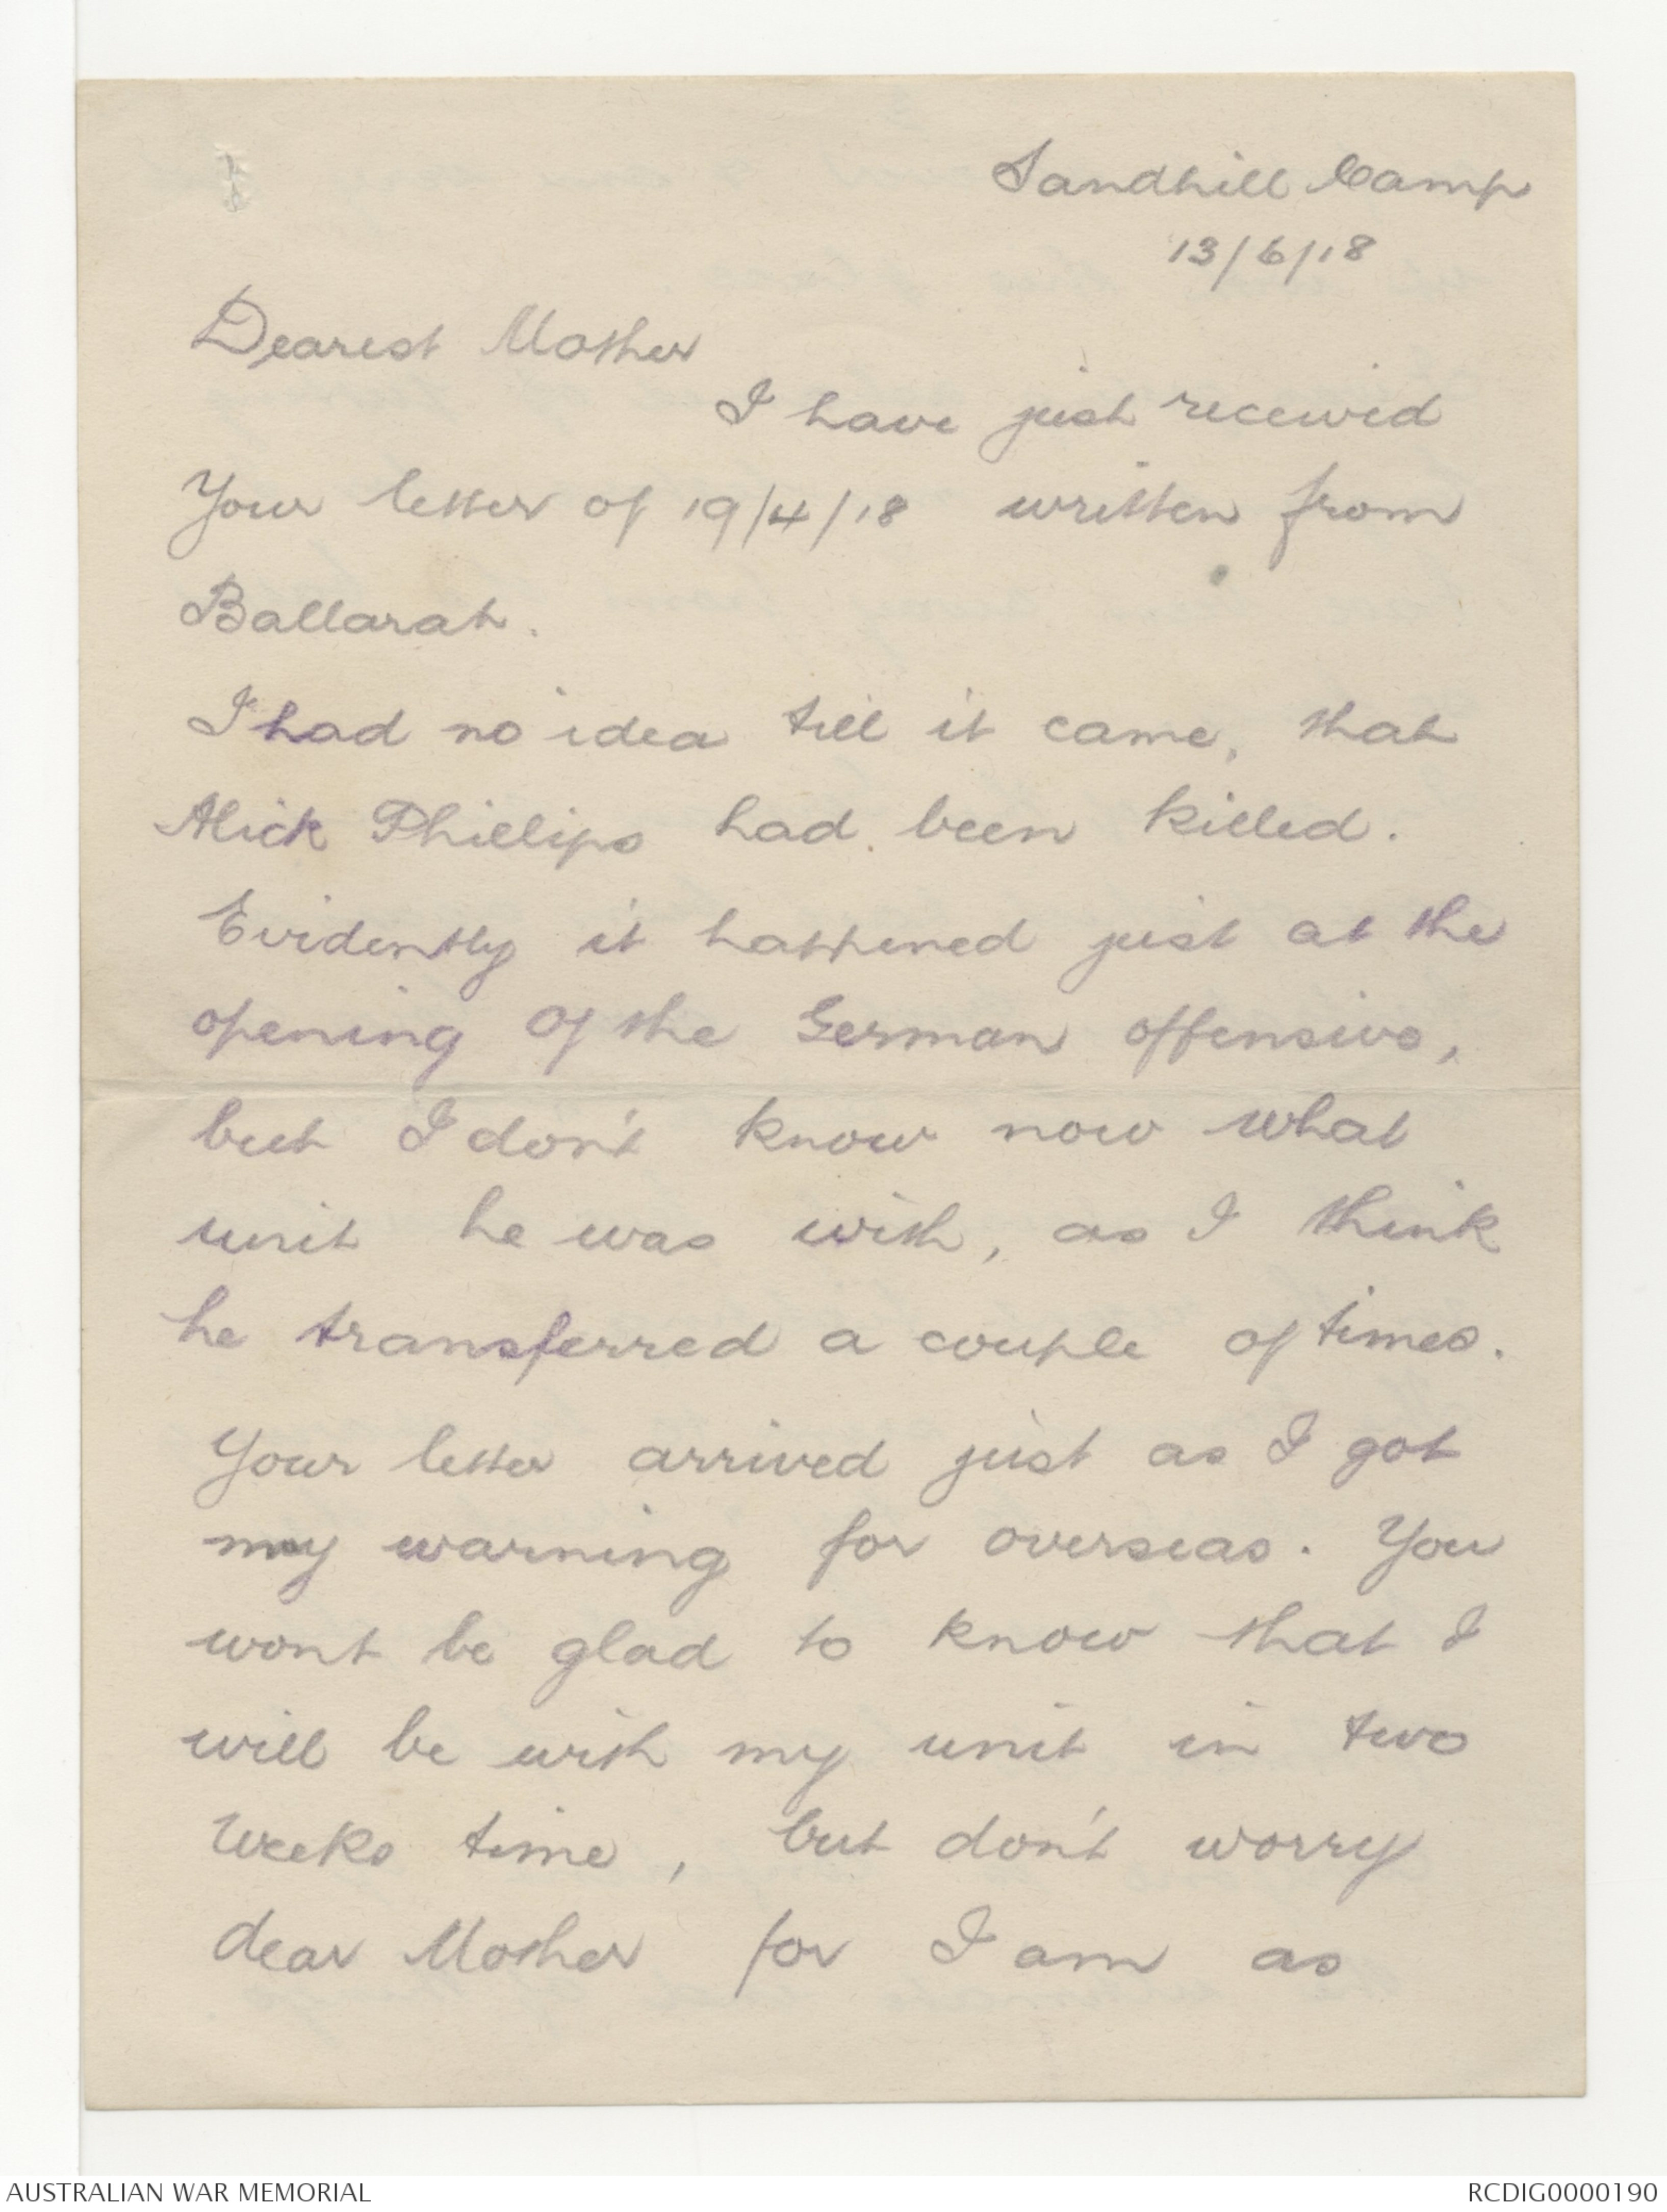 Sandhill Camp
13/6/18
Dearest Mother
I have just received
Your letter of 19/4/18 written from
Ballarat.
I had no idea till it came, that
Alick Phillips had been killed.
Evidently it happened just at the
opening of the German offensive,
but I don't know now what
unit he was with, as I think
he transferred a couple of times.
Your letter arrived just as I got
my warning for overseas. You
wont be glad to know that I
will be with my unit in two
weeks time, but don't worry
dear Mother for I am as
AUSTRALIAN WAR MEMORIAL
RCDIG0000190